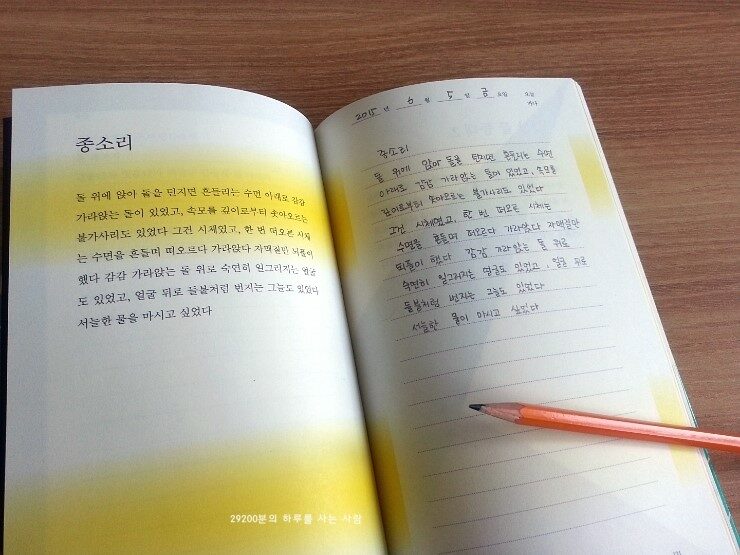 종소리
돌 위에 앉아 돌을 던지면 흔들리는 수면 아래로 감감
가라앉는 돌이 있었고, 속모를 깊이로부터 솟아오르는
불가사리도 있었다 그건 시체였고, 한 번 떠오른 시체
는 수면을 흔들며 떠오르다 가라앉다 자맥질만 되풀이
했다 감감 가라앉는 돌 위로 숙연히 일그러지는 얼굴
도 있었고, 얼굴 뒤로 들불처럼 번지는 그늘도 있었다
서늘한 물을 마시고 싶었다
29200분의 하루를 사는 사람
2015 년 6 월 5 일 금 요일
종소리
돌 위에 앉아 돌을 던지면 흔들리는 수면
아래로 감감 가라앉는 돌이 있었고, 속모를
깊이로부터 솟아오르는 불가사리도 있었다
그건 시체였고, 한 번 떠오른 시체는
수면을 흔들며 떠오르다 가라앉다 자맥질만
되풀이 했다 감감 가라앉는 돌 위로
숙연히 일그러지는 얼굴도 있었고 얼굴 뒤로
들불처럼 번지는 그늘도 있었다
서늘한 물이 마시고 싶었다